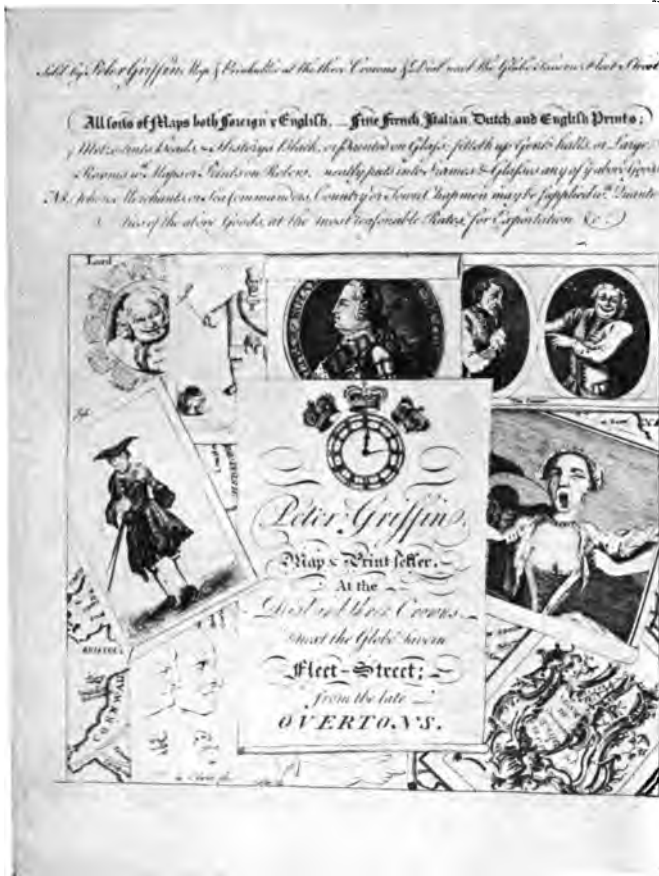 Sold by Peter Griffin Map & Printseller at the three Crowns & Dial next the Globe Tavern Fleet Street
(All sorts of Maps both Foreign & English. Fine French, Italian, Dutch, and English Prints;
Metzotinto Heads & History's Black, or Painted on Glass; fitteth up Gent.s halls, or Large
Rooms wth. Maps or Prints on Rolers, neatly puts into Frames & Glasses any of ye above Goods
NB. Merchants, or Sea Commanders, Country or Town Chapmen may be supplied wth. Quanti
ties of the above Goods, at the most reasonable Rates, for Exportation &c.)
Lord
Peter Griffin,
Map & Print seller,
At the
Dial and three Crowns
next the Globe Tavern
Fleet-Street;
from the late
OVERTON'S.
BRISTOL
CORNWAL